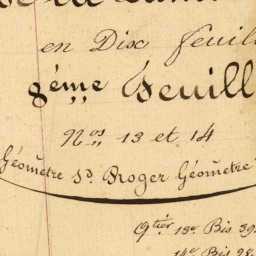 en Dix feuill
8ème Feuill
Nos 13 et 14
Géomètre Sd. Broger Géomètre
Qtier 13e Bis 39
14e Bis 28